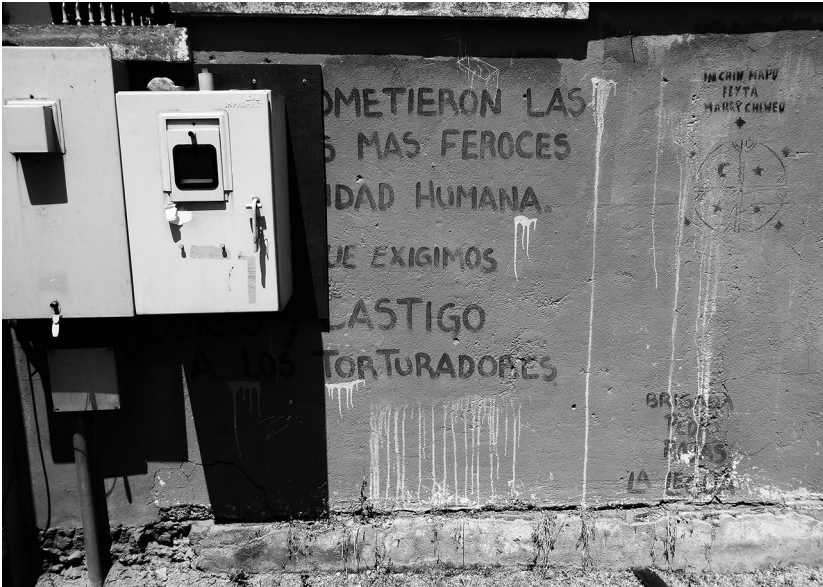 OMETIERON LAS
S MAS FEROCES
IDAD HUMANA.
UE EXIGIMOS
JUICIO Y CASTIGO
A LOS TORTURADORES
INCHIN MAPU
FEYTA
MARRI CHIWEU
BRIGADA
PEDRO
ROJAS
LA LEGUA